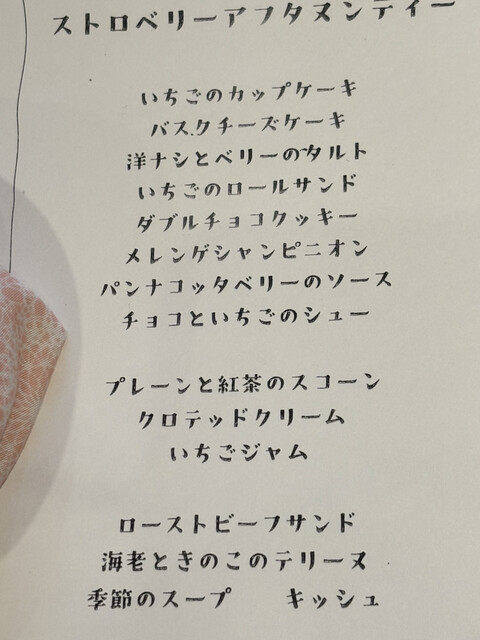 ストロベリーアフタヌンティー
いちごのカップケーキ
バスクチーズケーキ
洋ナシとベリーのタルト
いちごのロールサンド
ダブルチョコクッキー
メレンゲシャンピニオン
パンナコッタベリーのソース
チョコといちごのシュー
プレーンと紅茶のスコーン
クロテッドクリーム
いちごジャム
ローストビーフサンド
海老ときのこのテリーヌ
季節のスープ　　キッシュ